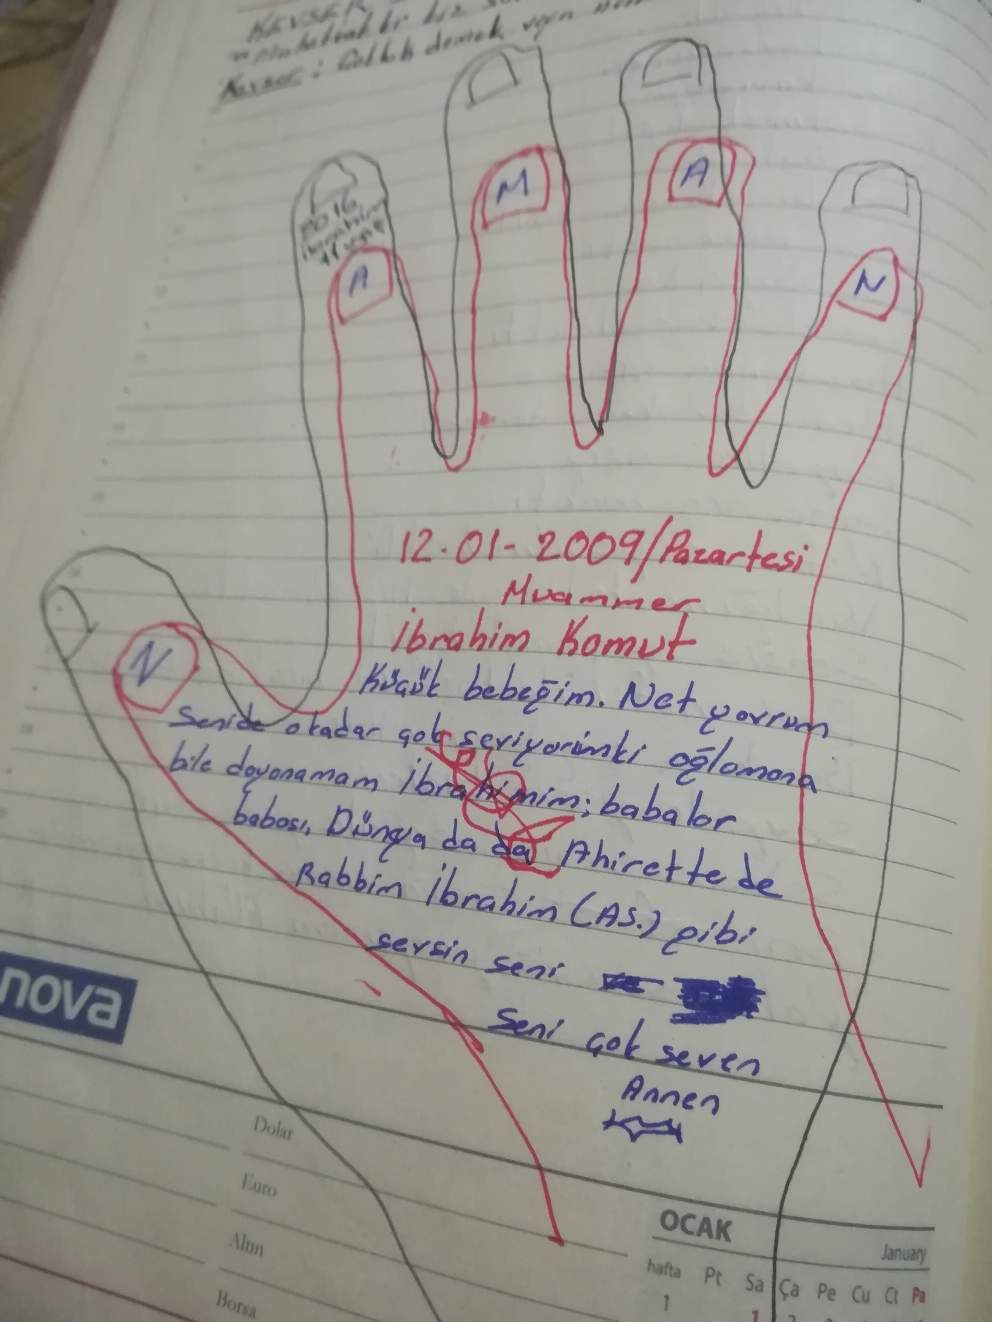 KEVSER
Kevser: Çokluk demek
M
A
2016
ibrahim
A
N
12.01-2009/Pazartesi
Muammer
ibrahim Komut
N
Küçük bebeğim. Net yavrum
Seni de o kadar çok seviyorumki oğlomona
bile doyonamam ibrahimim; babalar
babası, Dünya da da Ahirette de
Rabbim ibrahim (AS.) gibi
sevsin seni
Seni çok seven
Annen
nova
Dolar
Euro
Altın
Borsa
OCAK
January
hafta Pt Sa Ça Pe Cu Ct Pa
1 1 2